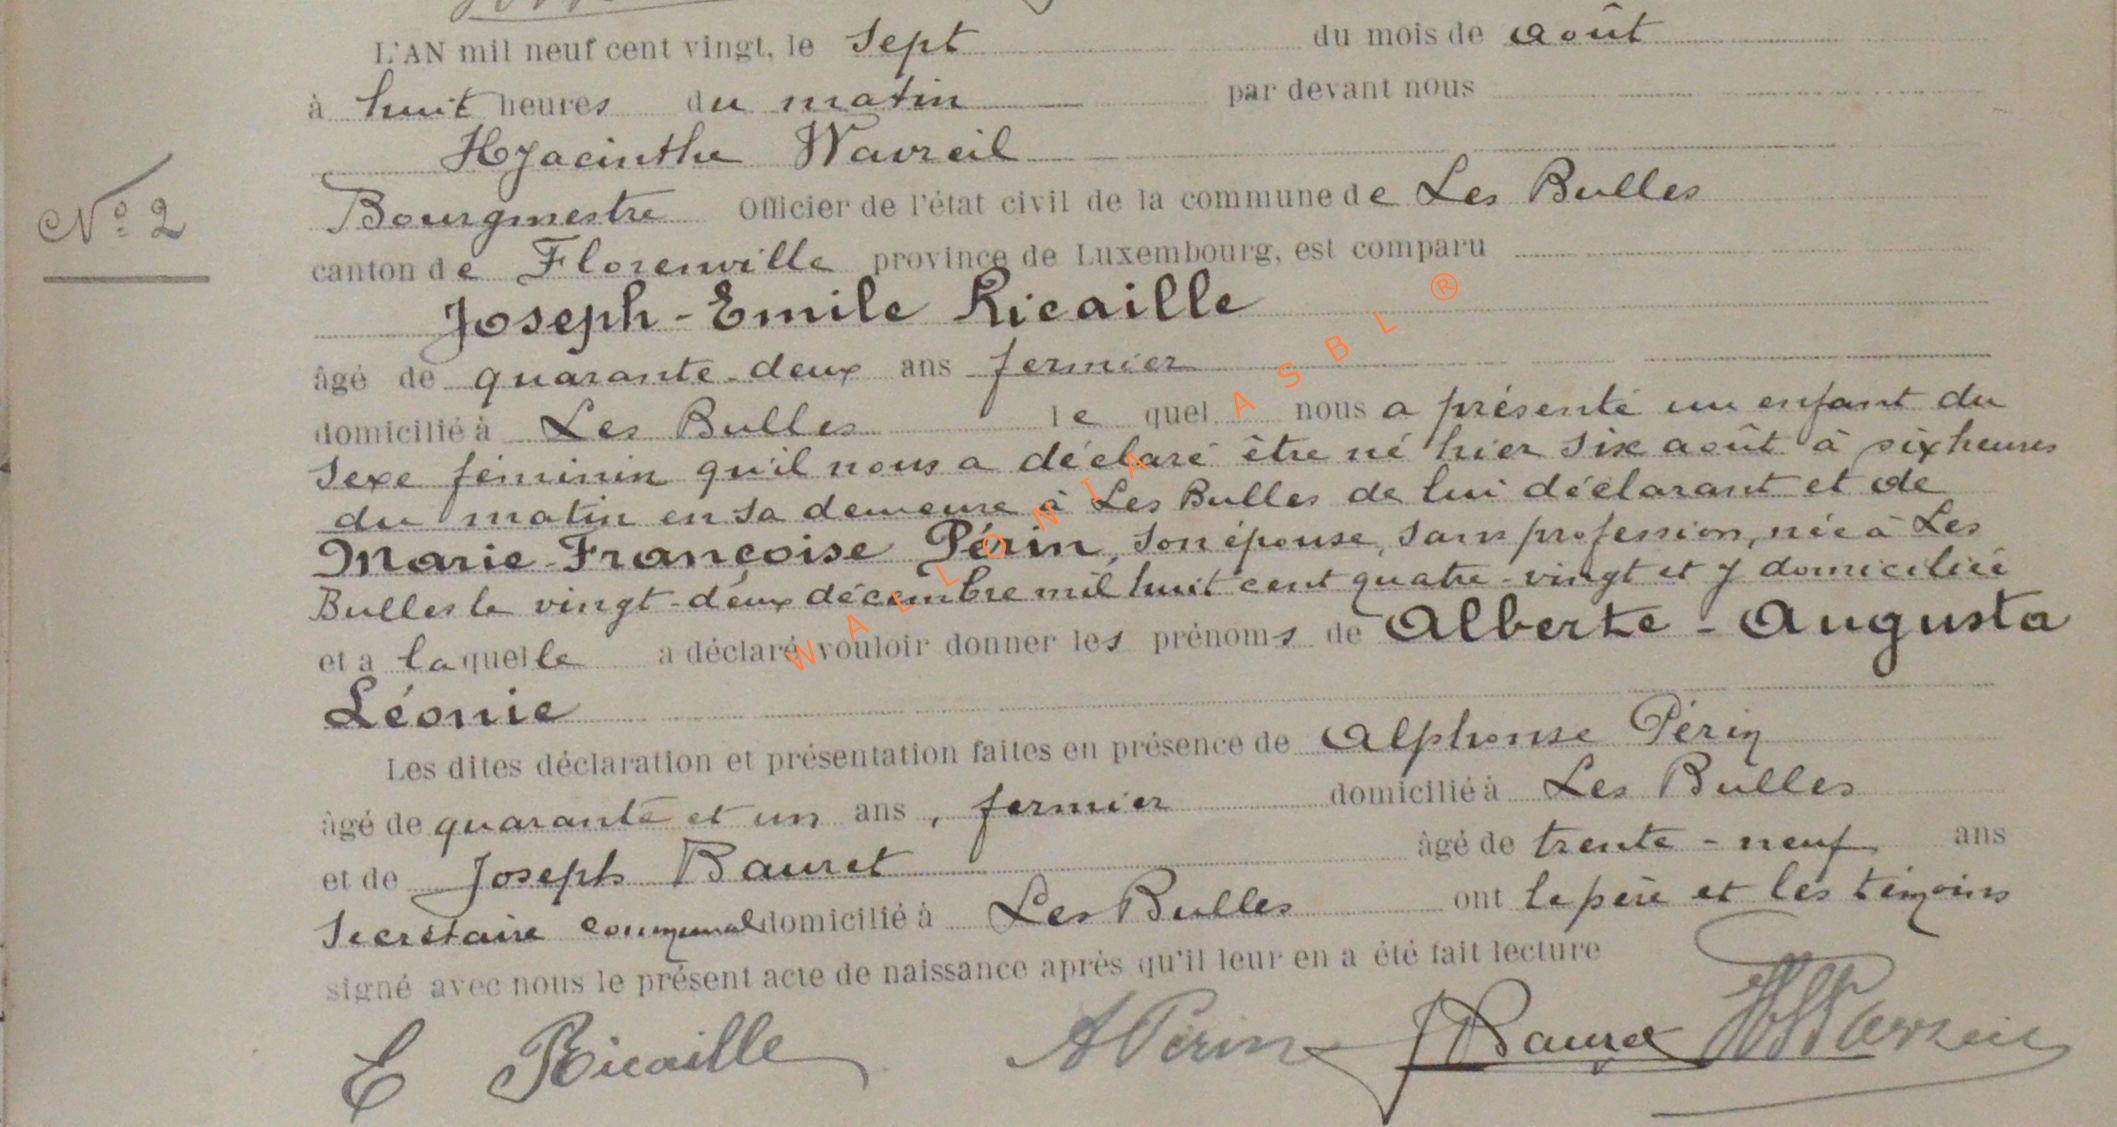 L'AN mil neuf cent vingt, le sept du mois de août
à huit heures du matin par devant nous
Hyacinthe Wavreil
N° 2
Bourgmestre Officier de l'état civil de la commune de Les Bulles
canton de Florenville province de Luxembourg, est comparu
Joseph-Emile Ricaille
âgé de quarante-deux ans fermier
domicilié à Les Bulles le quel nous a présenté un enfant du
sexe féminin qu'il nous a déclaré être né hier six août à six heures
du matin en sa demeure à Les Bulles de lui déclarant et de
Marie-Françoise Périn, son épouse, sans profession, née à Les
Bulles le vingt-deux décembre mil huit cent quatre-vingt et y domiciliée
et a laquelle a déclaré vouloir donner les prénoms de Alberte-Augusta
Léonie
Les dites déclaration et présentation faites en présence de Alphonse Périn
âgé de quarante et un ans, fermier domicilié à Les Bulles
et de Joseph Bauret âgé de trente-neuf ans
secrétaire communal domicilié à Les Bulles ont le père et les témoins
signé avec nous le présent acte de naissance après qu'il leur en a été fait lecture
E Ricaille A Périn J Bauret H Wavreil
WALLONIA ASBL ®